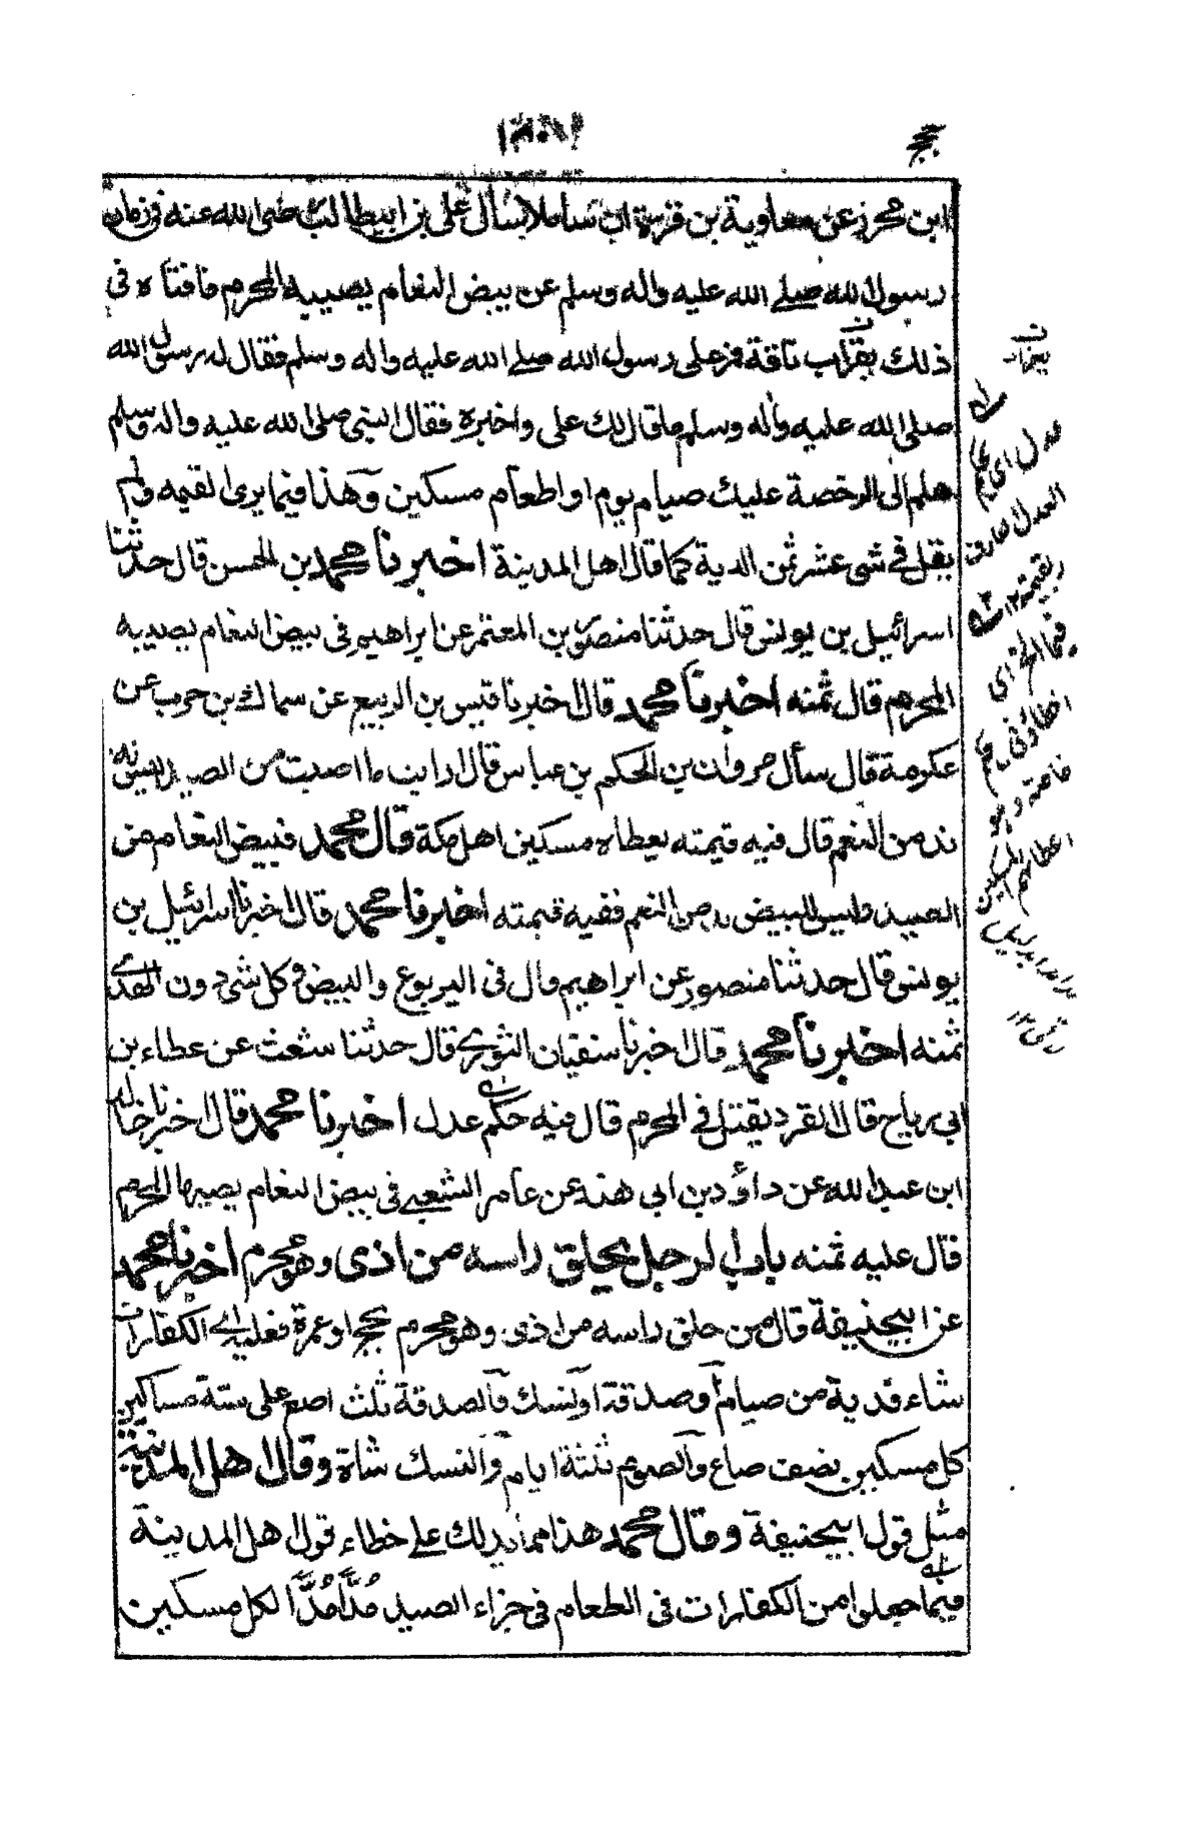 حج
ابن محرز عن معاوية بن قرة ان سائلا سأل علي بن ابيطالب رضى الله عنه في زمان
رسول الله صلے الله عليه واله وسلم عن بيض النعام يصيبه المحرم فافتاه في
ذلك ناقة فرعلى رسول الله صلے الله عليه واله وسلم فقال له رسول الله
صلى الله عليه واله وسلم ما قال لك على واخبره فقال النبي صلى الله عليه واله وسلم
هلم الى الرخصة عليك صيام يوم او اطعام مسكين وهذا فيما يرى القيمه ولم
يقل في شى عشر ثمن الدية كما قال اهل المدينة اخبرنا محمد بن الحسن قال حدثنا
اسرائيل بن يونس قال حدثنا منصور بن المعتمر عن ابراهيم في بيض النعام يصيبه
المحرم قال ثمنه اخبرنا محمد قال اخبرنا قيس بن الربيع عن سماك بن حرب عن
عكرمة قال سأل مروان بن الحكم بن عباس قال ارايت ما اصبت من الصيد ليس له
ند من النعم قال فيه قيمته يعطاه مسكين اهل مكة قال محمد فبيض النعام من
الصيد وليس للبيض ند من النعم ففيه قيمته اخبرنا محمد قال اخبرنا اسرائيل بن
يونس قال حدثنا منصور عن ابراهيم وال في اليربوع والبيض وكل شئ دون الهدے
ثمنه اخبرنا محمد قال اخبرنا سفيان الثورے قال حدثنا شعث عن عطاء بن
ابي رباح قال القرد يقتل في المحرم قال فيه حكم عدل اخبرنا محمد قال اخبرنا خالد
ابن عبد الله عن داؤد بن ابي هند عن عامر الشعبے في بيض النعام يصيبها المحرم
قال عليه ثمنه باب الرجل يحلق راسه من اذى وهو محرم اخبرنا محمد
عن ابيحنيفة قال من حلق راسه من اذى وهو محرم بحج او عمرة فعليه اے الكفارات
شاء فدية من صيام او صدقة او نسك فالصدقة ثلث اصع على ستة مساكين
كل مسكين نصف صاع والصوم ثلثة ايام والنسك شاة وقال اهل المدينة
مثل قول ابيحنيفة وقال محمد هذا مما يدلك على خطاء قول اهل المدينة
فيما جعلوا من الكفارات في الطعام في جزاء الصيد مُدًّا مُدًّا لكل مسكين